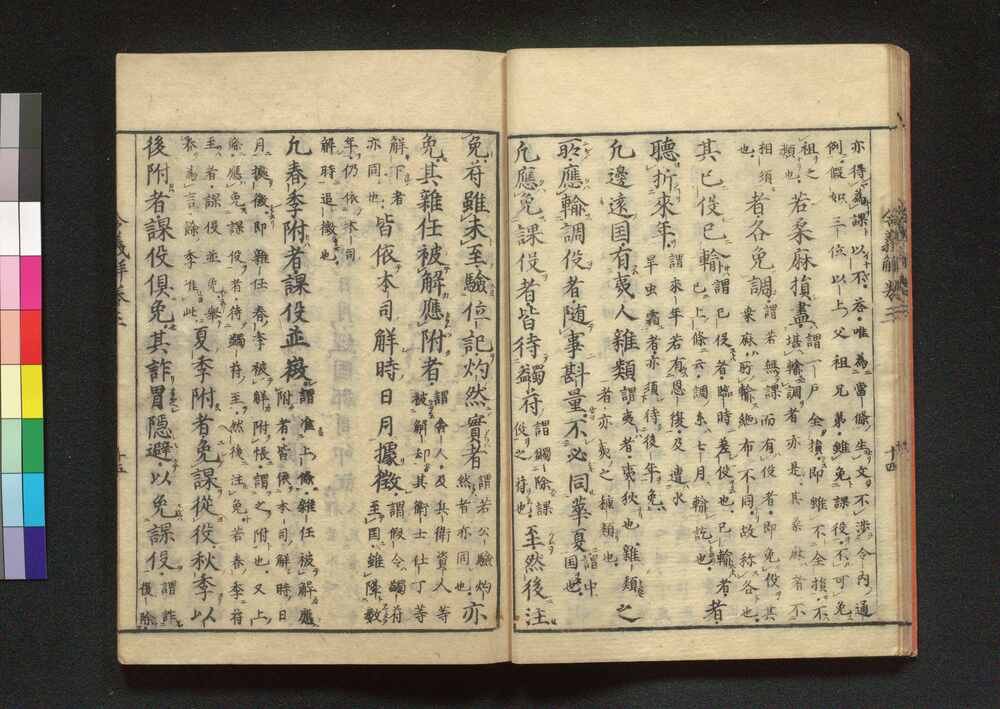 亦得爲課以不。答。唯爲當條生文。不涉令内通
例。假如三位以上父祖兄弟雖免課役。不可免
祖之類也。若桑麻損盡謂一戸全損。即雖不全損。不堪輸調者亦是。其桑麻者不
相須也。者各免調。謂若無課而有役者。即免役其桑麻所輸絁布不同。故称各也。
其已役已輸謂已役者臨時差役也。已輸者已上條云。調糸七月輸訖也。者
聽折來年。謂來年若有恩復。及遭水旱虫霜者。亦須待後年免。
凡邊遠国有夷人雜類謂夷者夷狄也。雜類者亦夷之種類也。之
所應輸調役者随事斟量。不必同華夏謂中国也。
凡應免課役者皆待蠲符謂蠲除課役之符也至然後注
令義解巻三 十四
免符雖未至驗位記灼然實者謂若公驗灼然者亦同也。亦
免。其雜任被解應附者。謂舎人及兵衛資人等被解却。其衛士仕丁等
解下者亦同也。皆依本司解時日月據徴。謂假令蠲符至国雖降數
年。仍依本司解時追徴也。
凡春季附者課役並徴。謂准上條。雜任被解應附者。皆依本司解時日
月據徴。即雜任春季被解附帳。謂之附也。又上
條應免課役者。待蠲符至。然後注免。若春季符
至者。課役並免。舉春爲言。餘季准此。夏季附者免課從役。秋季以
後附者課役倶免其詐冒隠避。以免課役。謂詐復除
令義解巻三 十五